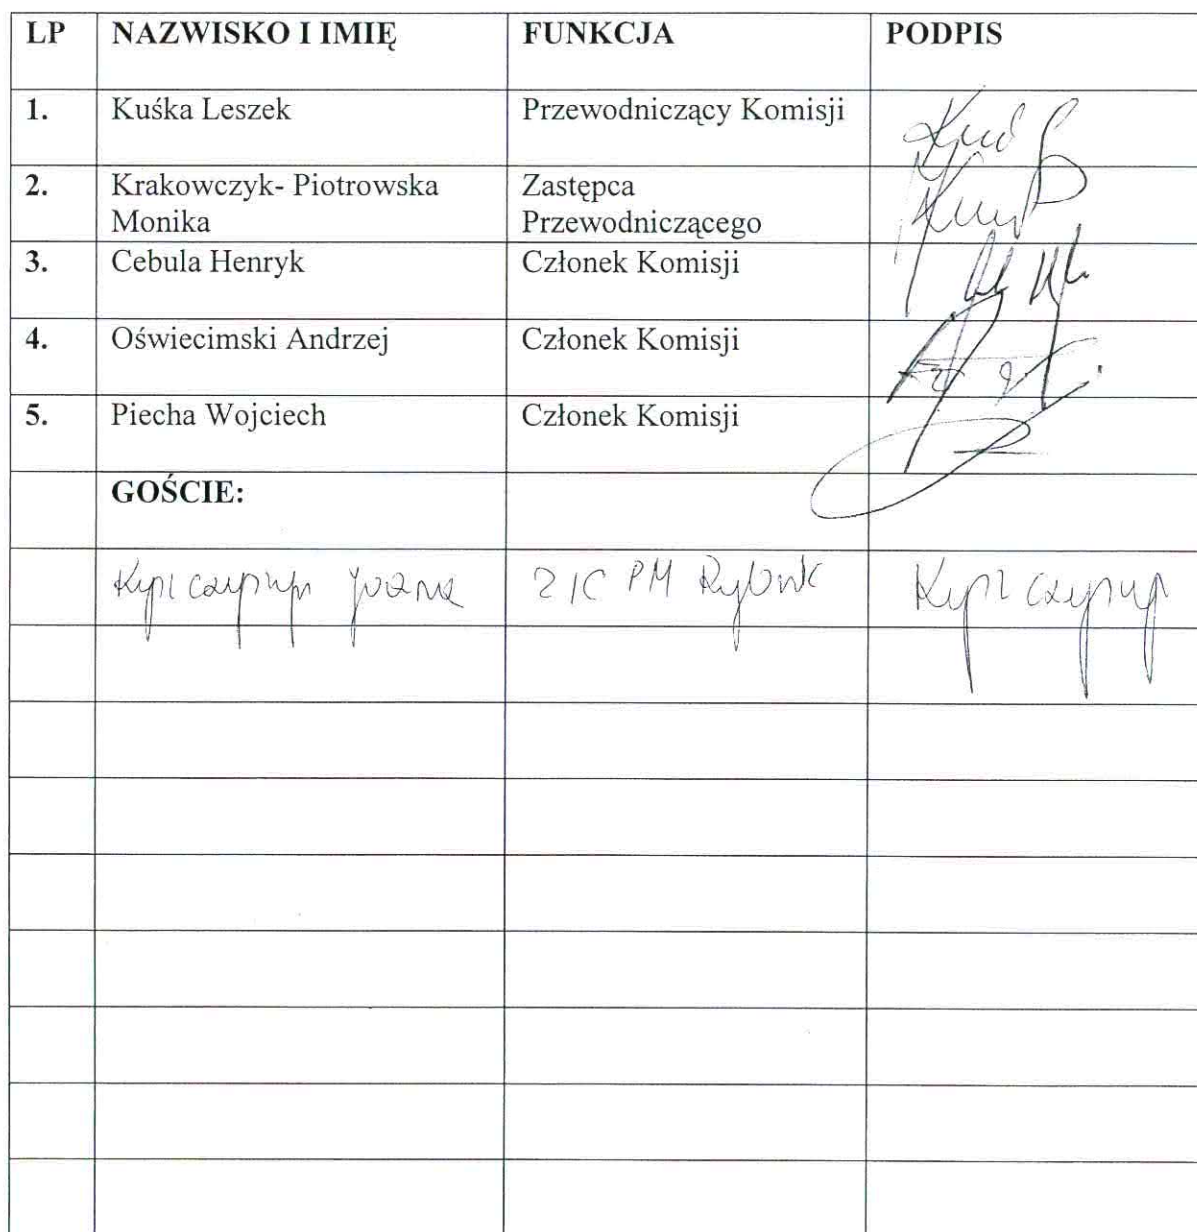 LP NAZWISKO I IMIĘ FUNKCJA PODPIS
1. Kuśka Leszek Przewodniczący Komisji
2. Krakowczyk- Piotrowska Zastępca
Monika Przewodniczącego
3. Cebula Henryk Członek Komisji
4. Oświecimski Andrzej Członek Komisji
5. Piecha Wojciech Członek Komisji
GOŚCIE:
PM Rybnik